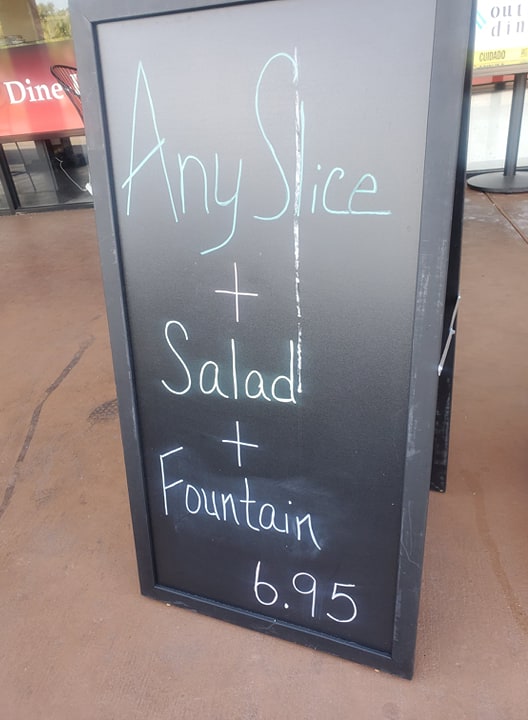 Any Slice
+
Salad
+
Fountain
6.95
Dine
out
din
CUIDADO